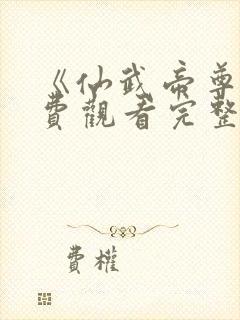 《仙武帝尊
費觀看完整
費權